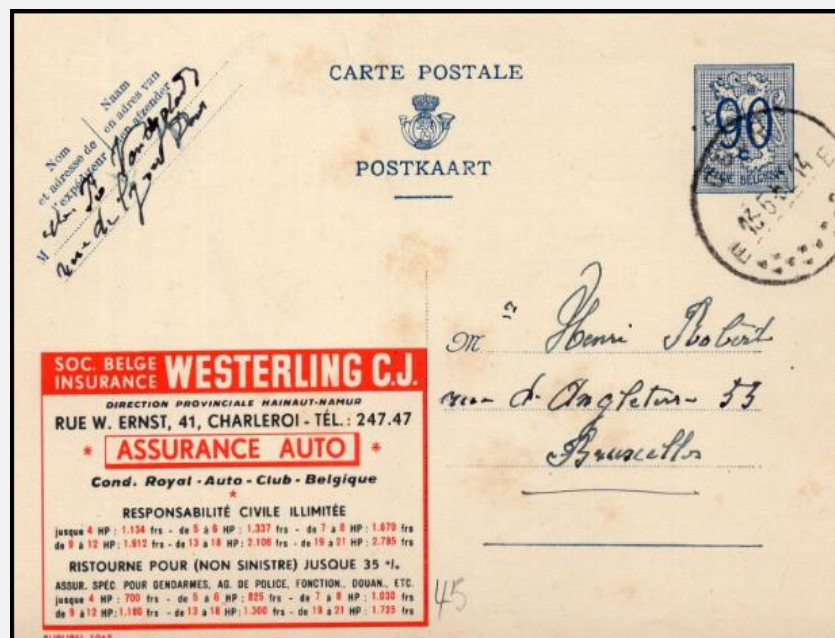 CARTE POSTALE
POSTKAART
Nom
et adresse de
l'expéditeur
Naam
en adres van
en afzender
M
rue de
90
c
BELGIE BELGIQUE
13
M Henri Robert
rue d'Angleterre 53
Bruxelles
SOC. BELGE
INSURANCE WESTERLING C.J.
DIRECTION PROVINCIALE HAINAUT-NAMUR
RUE W. ERNST, 41, CHARLEROI - TÉL.: 247.47
* ASSURANCE AUTO *
Cond. Royal-Auto-Club-Belgique
*
RESPONSABILITÉ CIVILE ILLIMITÉE
jusque 4 HP : 1.134 frs - de 5 à 6 HP : 1.337 frs - de 7 à 8 HP : 1.679 frs
de 9 à 12 HP : 1.912 frs - de 13 à 18 HP : 2.106 frs - de 19 à 21 HP : 2.795 frs
RISTOURNE POUR (NON SINISTRE) JUSQUE 35 %
ASSUR. SPÉC. POUR GENDARMES, AG. DE POLICE, FONCTION., DOUAN., ETC.
jusque 4 HP : 700 frs - de 5 à 6 HP : 825 frs - de 7 à 8 HP : 1.030 frs
de 9 à 12 HP : 1.180 frs - de 13 à 18 HP : 1.300 frs - de 19 à 21 HP : 1.725 frs
45